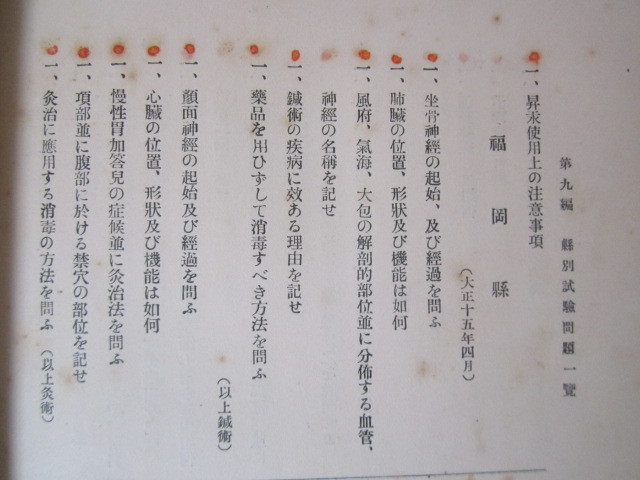 第九編　縣別試驗問題一覽
一、昇汞使用上の注意事項
福岡縣
（大正十五年四月）
一、坐骨神經の起始、及び經過を問ふ
一、肺臟の位置、形狀及び機能は如何
一、風府、氣海、大包の解剖的部位並に分佈する血管、
神經の名稱を記せ
一、鍼術の疾病に效ある理由を記せ
一、藥品を用ひずして消毒すべき方法を問ふ
（以上鍼術）
一、顏面神經の起始及び經過を問ふ
一、心臟の位置、形狀及び機能は如何
一、慢性胃加答兒の症候並に灸治法を問ふ
一、項部並に腹部に於ける禁穴の部位を記せ
一、灸治に應用する消毒の方法を問ふ（以上灸術）